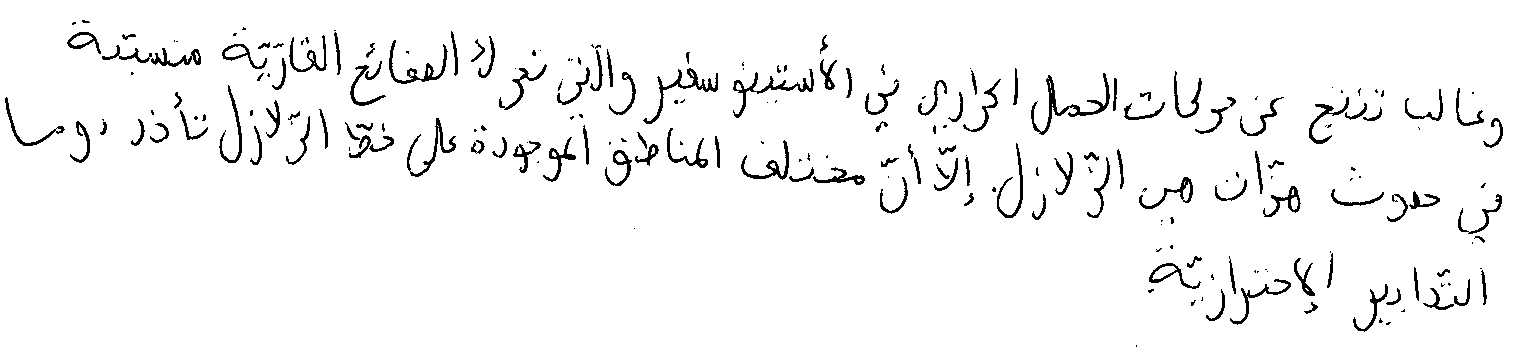 وغالب تنتج عن حركات الحمل الحراري في الأستينوسفير والّتي تحرك الصفائح القارّيّة متسببة
في حدوث هزّات هي الزّلازل. إلّا أنّ مختلف المناطق الموجودة على خطّ الزّلازل تأخذ دوما
التّدابير الإحترازيّة